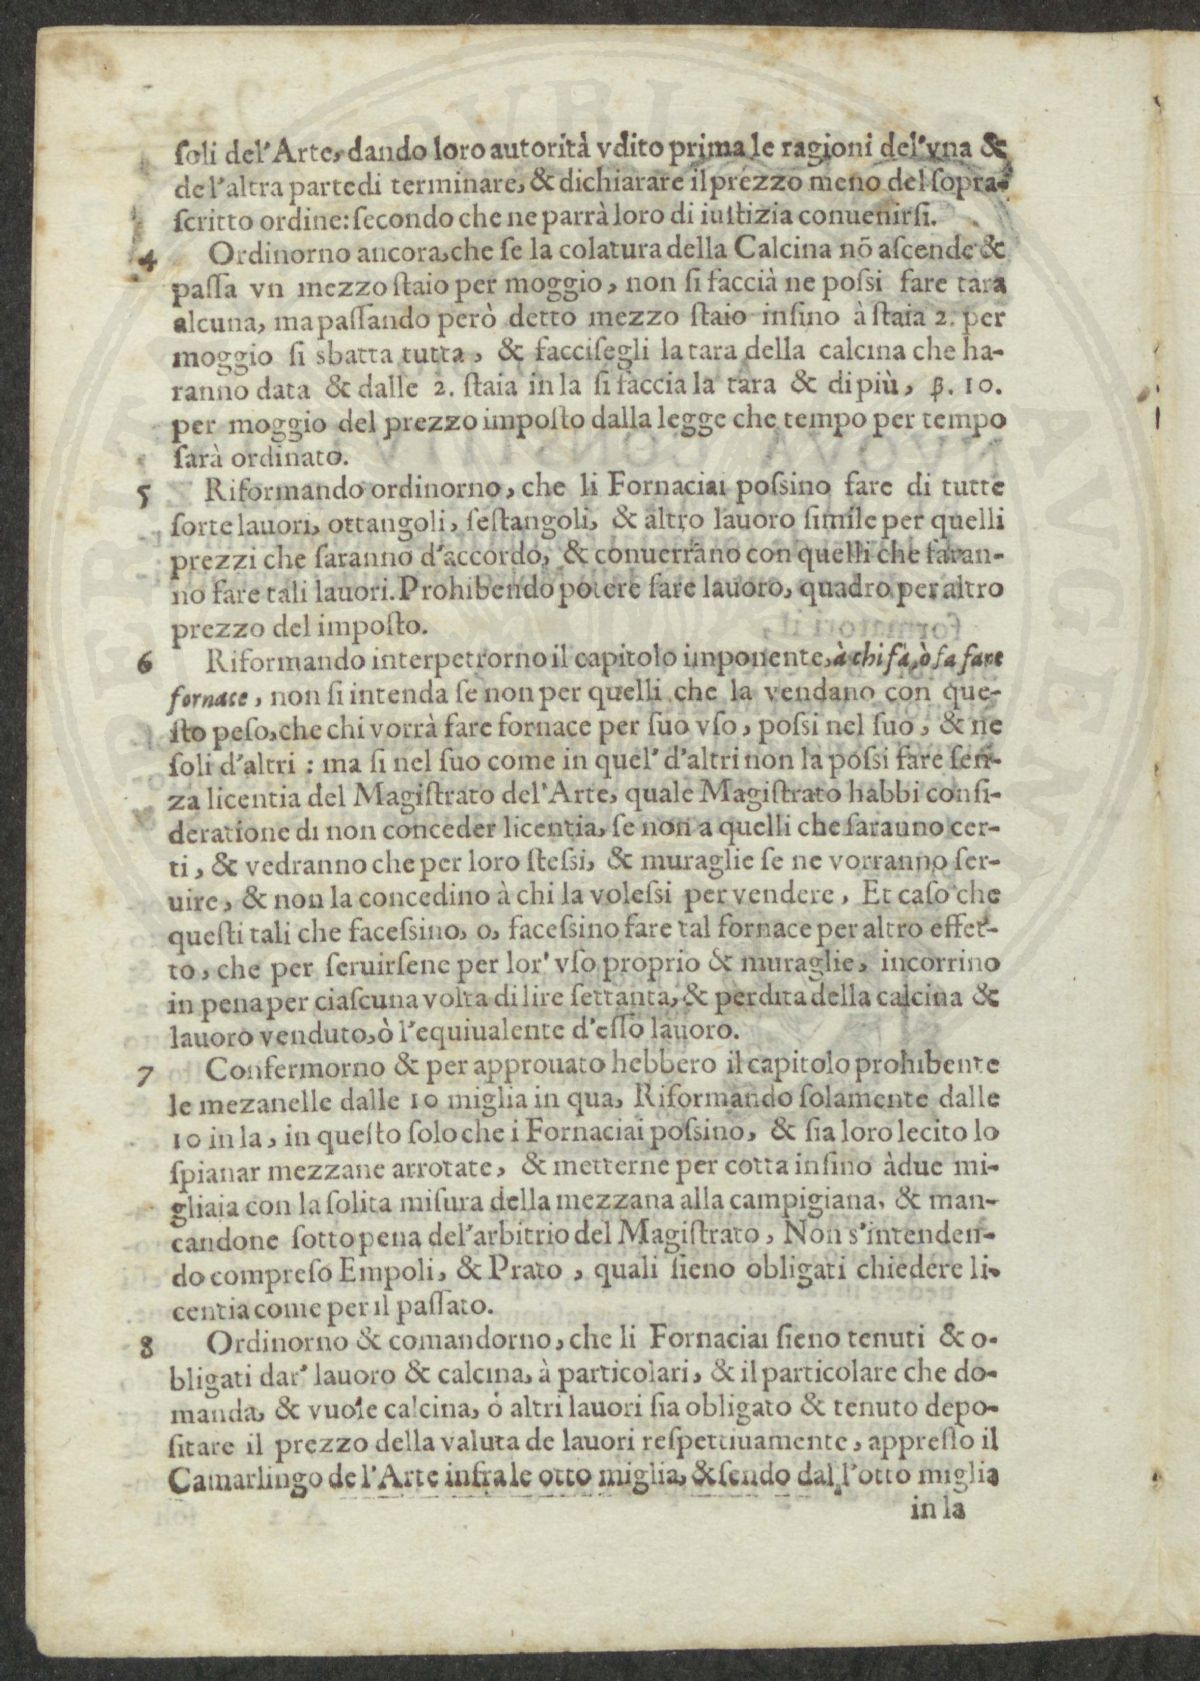 ſoli del'Arte, dando loro autorità vdito prima le ragioni del'vna &
de l'altra parte di terminare, & dichiarare il prezzo meno del ſopra-
ſcritto ordine: ſecondo che ne parrà loro di iuſtizia conuenirſi.
4 Ordinorno ancora, che ſe la colatura della Calcina nõ aſcende &
paſſa vn mezzo ſtaio per moggio, non ſi faccià ne poſſi fare tara
alcuna, ma paſſando però detto mezzo ſtaio inſino à ſtaia 2. per
moggio ſi sbatta tutta, & facciſegli la tara della calcina che ha-
ranno data & dalle 2. ſtaia in la ſi faccia la tara & di più, ꞵ. 10.
per moggio del prezzo impoſto dalla legge che tempo per tempo
ſarà ordinato.
5 Riformando ordinorno, che li Fornaciai poſsino fare di tutte
ſorte lauori, ottangoli, ſeſtangoli, & altro lauoro ſimile per quelli
prezzi che ſaranno d'accordo, & conuerrano con quelli che faran-
no fare tali lauori. Prohibendo potere fare lauoro, quadro per altro
prezzo del impoſto.
6 Riformando interpetrorno il capitolo imponente, à chi fà, ò fa fare
fornace, non ſi intenda ſe non per quelli che la vendano con que-
ſto peſo, che chi vorrà fare fornace per ſuo vſo, poſsi nel ſuo, & ne
ſoli d'altri : ma ſi nel ſuo come in quel' d'altri non la poſsi fare ſen-
za licentia del Magiſtrato del'Arte, quale Magiſtrato habbi conſi-
deratione di non conceder licentia, ſe non a quelli che ſarauno cer-
ti, & vedranno che per loro ſteſsi, & muraglie ſe ne vorranno ſer-
uire, & non la concedino à chi la voleſsi per vendere, Et caſo che
queſti tali che faceſsino, o, faceſsino fare tal fornace per altro effet-
to, che per ſeruirſene per lor' vſo proprio & muraglie, incorrino
in pena per ciaſcuna volta di lire ſettanta, & perdita della calcina &
lauoro venduto, ò l'equiualente d'eſſo lauoro.
7 Confermorno & per approuato hebbero il capitolo prohibente
le mezanelle dalle 10 miglia in qua, Riformando ſolamente dalle
10 in la, in queſto ſolo che i Fornaciai poſsino, & ſia loro lecito lo
ſpianar mezzane arrotate, & metterne per cotta inſino àdue mi-
gliaia con la ſolita miſura della mezzana alla campigiana, & man-
candone ſotto pena del'arbitrio del Magiſtrato, Non s'intenden-
do compreſo Empoli, & Prato, quali ſieno obligati chiedere li-
centia come per il paſſato.
8 Ordinorno & comandorno, che li Fornaciai ſieno tenuti & o-
bligati dar' lauoro & calcina, à particolari, & il particolare che do-
manda, & vuole calcina, ó altri lauori ſia obligato & tenuto depo-
ſitare il prezzo della valuta de lauori reſpettiuamente, appreſſo il
Camarlingo de l'Arte infra le otto miglia, & ſendo dal l'otto miglia
in la